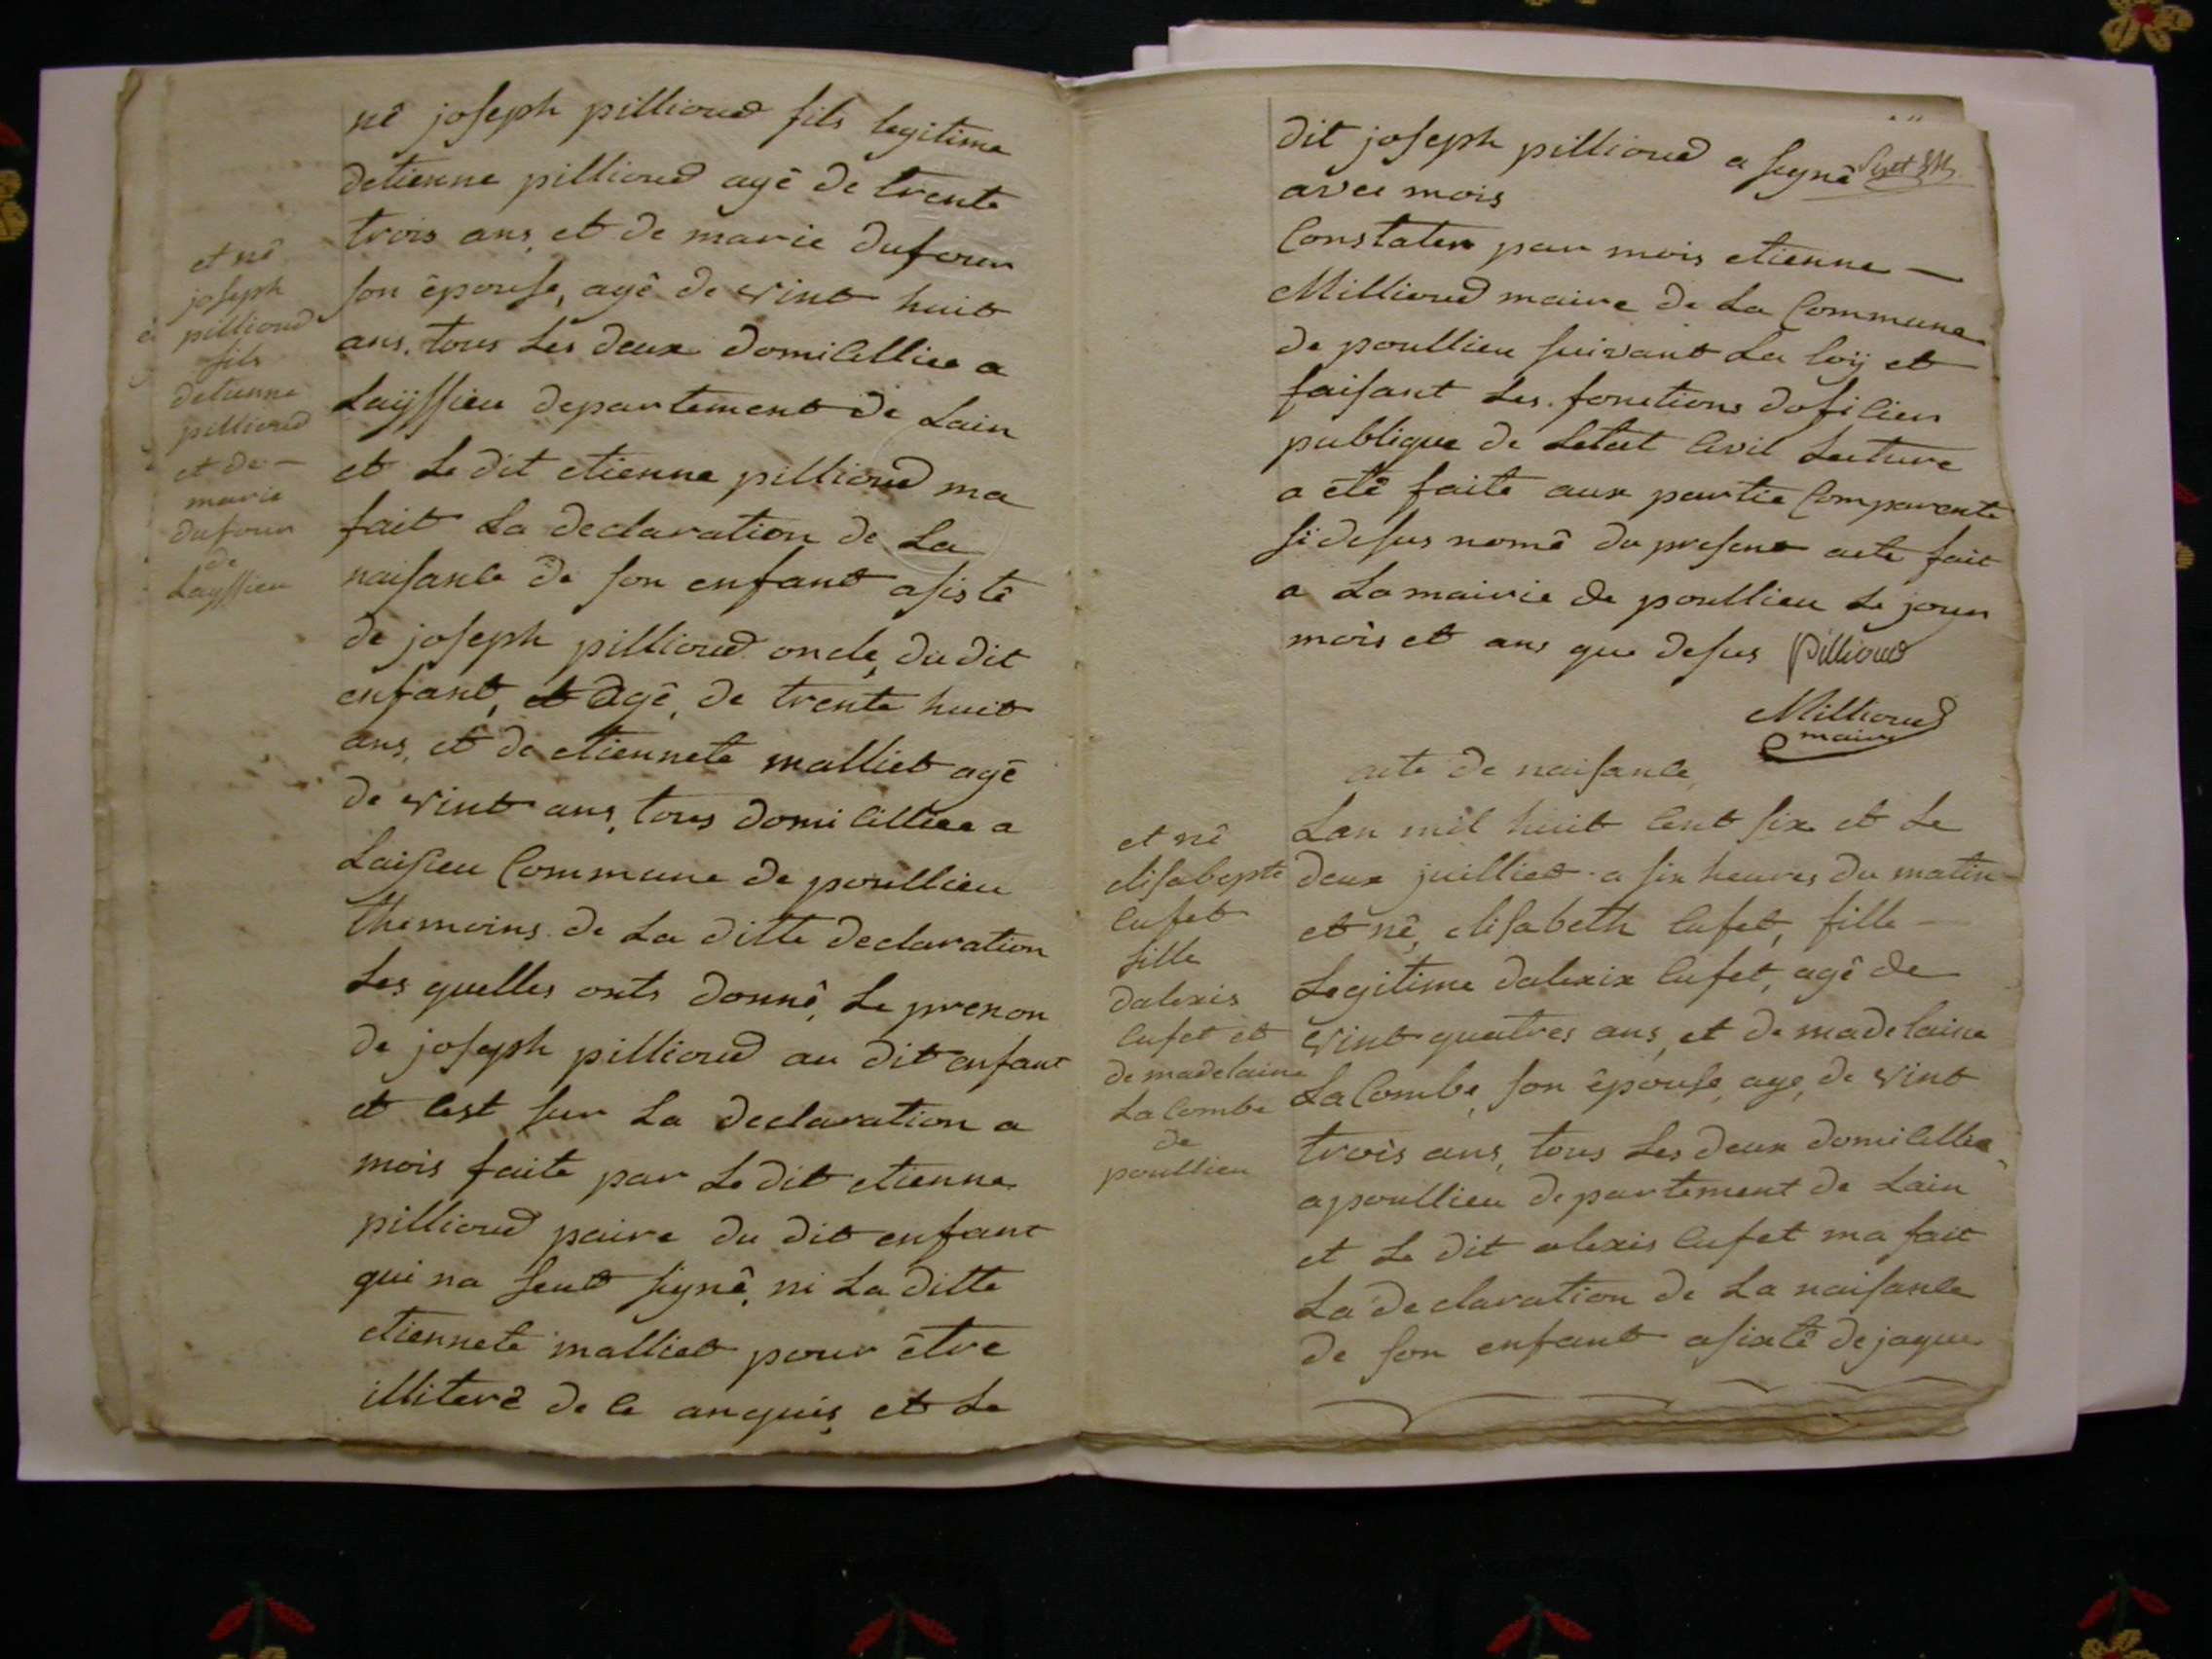 et nê
joseph
pillioud
fils
detienne
pillioud
et de —
marie
dufour
de
Layssieu
nê joseph pillioud fils legitime
detienne pillioud agê de trente
trois ans, et de marie dufour
son êpouse, agê de vint huit
ans, tous Les deux domicilliee a
Laÿssieu departement de Lain
et Le dit etienne pillioud ma
fait La declaration de La
naisance de son enfant asistê
de joseph pillioud oncle, du dit
enfant, et agê, de trente huit
ans, et de etiennete malliet agê
de vint ans, tous domicilliee a
Laisieu Commune de poullieu
themoins de La ditte declaration
Les quelles onts donnê, Le prenon
de joseph pillioud au dit enfant
et cest sur La declaration a
mois faite par Le dit etienne
pillioud paire du dit enfant
qui na seut signê, ni La ditte
etiennete malliet pour être
illiterê de ce anquis, et Le
dit joseph pillioud a signê
avec mois
Constater par mois etienne —
Millioud maire de La Commune
de poullieu suivant La loÿ et
faisant Les fonctions doficier
publique de Letat Civil Lecture
a êtê faite aux partie Comparente
si desus nomê du present acte fait
a La mairie de poullieu Le jour
mois et ans que desus Pillioud
Millioud
maire
acte de naisance
et nê
elisabepte
cufet
fille
dalexis
cufet et
de madelaine
LaCombe
de
poullieu
Lan mil huit cent six et Le
deux juilliet a six heures du matin
et nê, elisabeth cufet, fille —
Legitime dalexix cufet, agê de
vint quatres ans, et de madelaine
LaCombe, son êpouse, age, de vint
trois ans, tous Les deux domicilliee
a poullieu departement de Lain
et Le dit alexis cufet ma fait
La declaration de La naisance
de son enfant asixtê de jaque